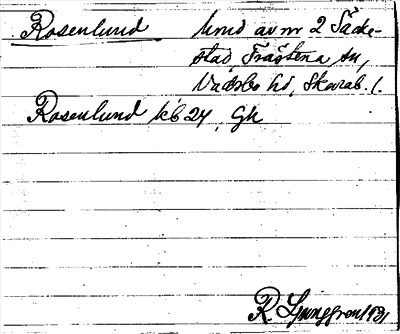 Rosenlund und av nr 2 Säcke-
stad, Fräkena sn,
Vadsbo hd, Skarab. l.
Rosenlund kb 24, Gk
R. Ljunggren 1931